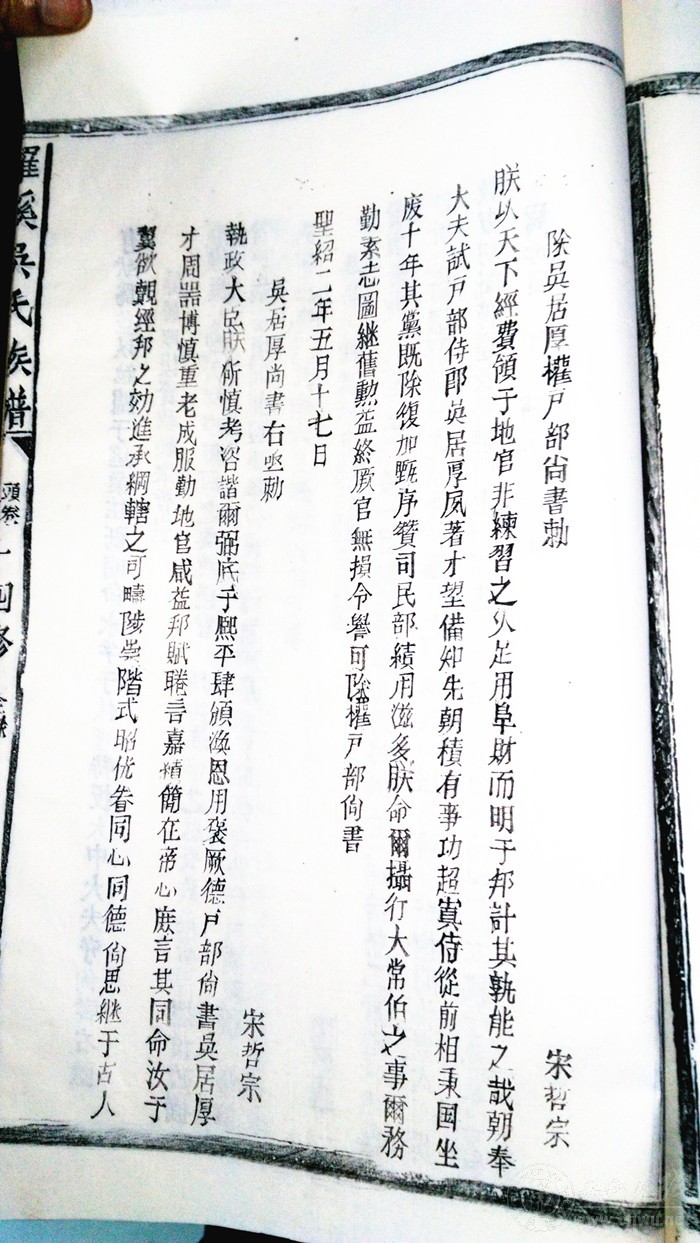 除吳居厚權戶部尙書勅 宋哲宗
朕以天下經費領于地官非練習之久足用阜財而明于邦計其孰能之哉朝奉
大夫試戸部侍郎吳居厚夙著才望備知先朝積有事功超寘侍從前相秉国坐
废十年其黨既除復加甄序贊司民部績用滋多朕命爾攝行大常伯之事爾務
勤素志圖继舊勲益终厥官無損令譽可除權戸部尙書
聖紹二年五月十七日
吳居厚尙書右丞勅 宋哲宗
執政大臣朕所慎考咨諧爾弼底于熈平肆頒渙恩用褒厥德戸部尙書吳居厚
才周噐博慎重老成服勤地官咸益邦賦睠言嘉績簡在帝心庻言其同命汝于
翼欲覩經邦之効進承綱轄之司疇陟崇階式昭优眷同心同德尙思継于古人
羅溪吳氏族譜
頭卷